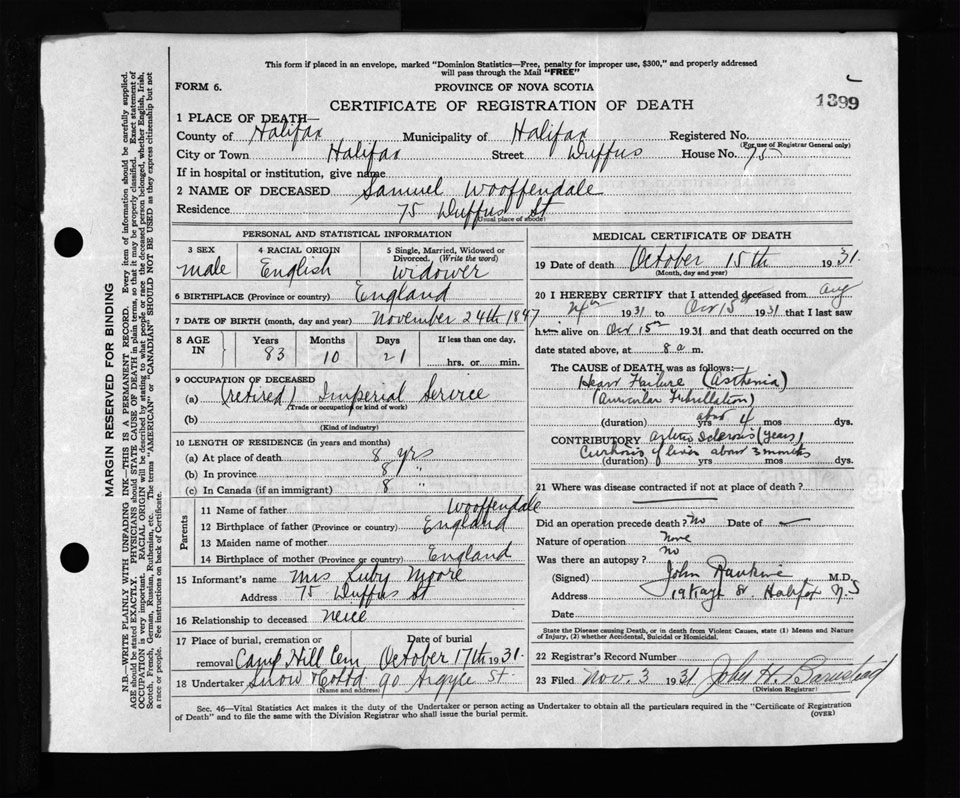 This form if placed in an envelope, marked "Dominion Statistics—Free, penalty for improper use, $300," and properly addressed
will pass through the Mail "FREE"
FORM 6.
PROVINCE OF NOVA SCOTIA
CERTIFICATE OF REGISTRATION OF DEATH
1399
1 PLACE OF DEATH—
County of Halifax Municipality of Halifax Registered No.
(For use of Registrar General only)
City or Town Halifax Street Duffus House No. 75
If in hospital or institution, give name
2 NAME OF DECEASED Samuel Wooffendale
Residence 75 Duffus St
(Usual place of abode)
PERSONAL AND STATISTICAL INFORMATION
3 SEX male
4 RACIAL ORIGIN English
5 Single, Married, Widowed or
Divorced. (Write the word)
widower
6 BIRTHPLACE (Province or country) England
7 DATE OF BIRTH (month, day and year) November 24th 1847
8 AGE IN
Years Months Days If less than one day,
83 10 21 hrs. or min.
9 OCCUPATION OF DECEASED
(a) (retired) Imperial Service
(Trade or occupation or kind of work)
(b)
(Kind of industry)
10 LENGTH OF RESIDENCE (in years and months)
(a) At place of death 8 yrs
(b) In province 8 "
(c) In Canada (if an immigrant) 8 "
Parents
11 Name of father Wooffendale
12 Birthplace of father (Province or country) England
13 Maiden name of mother
14 Birthplace of mother (Province or country) England
15 Informant's name Mrs Ruby Moore
Address 75 Duffus St
16 Relationship to deceased neice
17 Place of burial, cremation or Date of burial
removal Camp Hill Cem October 17th 1931
18 Undertaker Snow & Co Ltd 90 Argyle St.
(Name and address)
MEDICAL CERTIFICATE OF DEATH
19 Date of death October 15th 1931.
(Month, day and year)
20 I HEREBY CERTIFY that I attended deceased from Aug
24th 1931 to Oct 15th 1931 that I last saw
him alive on Oct 15th 1931 and that death occurred on the
date stated above, at 8 a m.
The CAUSE of DEATH was as follows:—
Heart Failure (Asthenia)
(Auricular Fibrillation)
(duration) yrs about 4 mos dys.
CONTRIBUTORY Arterio Sclerosis (years)
Cirrhosis of liver about 3 months
(duration) yrs mos dys.
21 Where was disease contracted if not at place of death?
Did an operation precede death? No Date of —
Nature of operation None
Was there an autopsy? No
(Signed) John Rankine M.D.
Address Halifax N.S
Date
State the Disease causing Death, or in death from Violent Causes, state (1) Means and Nature
of Injury, (2) whether Accidental, Suicidal or Homicidal.
22 Registrar's Record Number
23 Filed Nov. 3 1931 John H. Barnstead
(Division Registrar)
Sec. 46—Vital Statistics Act makes it the duty of the Undertaker or person acting as Undertaker to obtain all the particulars required in the "Certificate of Registration
of Death" and to file the same with the Division Registrar who shall issue the burial permit.
(OVER)
MARGIN RESERVED FOR BINDING
N.B.—WRITE PLAINLY WITH UNFADING INK—THIS IS A PERMANENT RECORD. Every item of information should be carefully supplied.
AGE should be stated EXACTLY. PHYSICIANS should STATE CAUSE OF DEATH in plain terms, so that it may be properly classified. Exact statement of
OCCUPATION is very important. RACIAL ORIGIN will be described by stating to what people or race the deceased person belonged, whether English, Irish,
Scotch, French, German, Russian, Ruthenian, etc. The terms "AMERICAN" or "CANADIAN" SHOULD NOT BE USED as they express citizenship but not
a race or people. See instructions on back of Certificate.